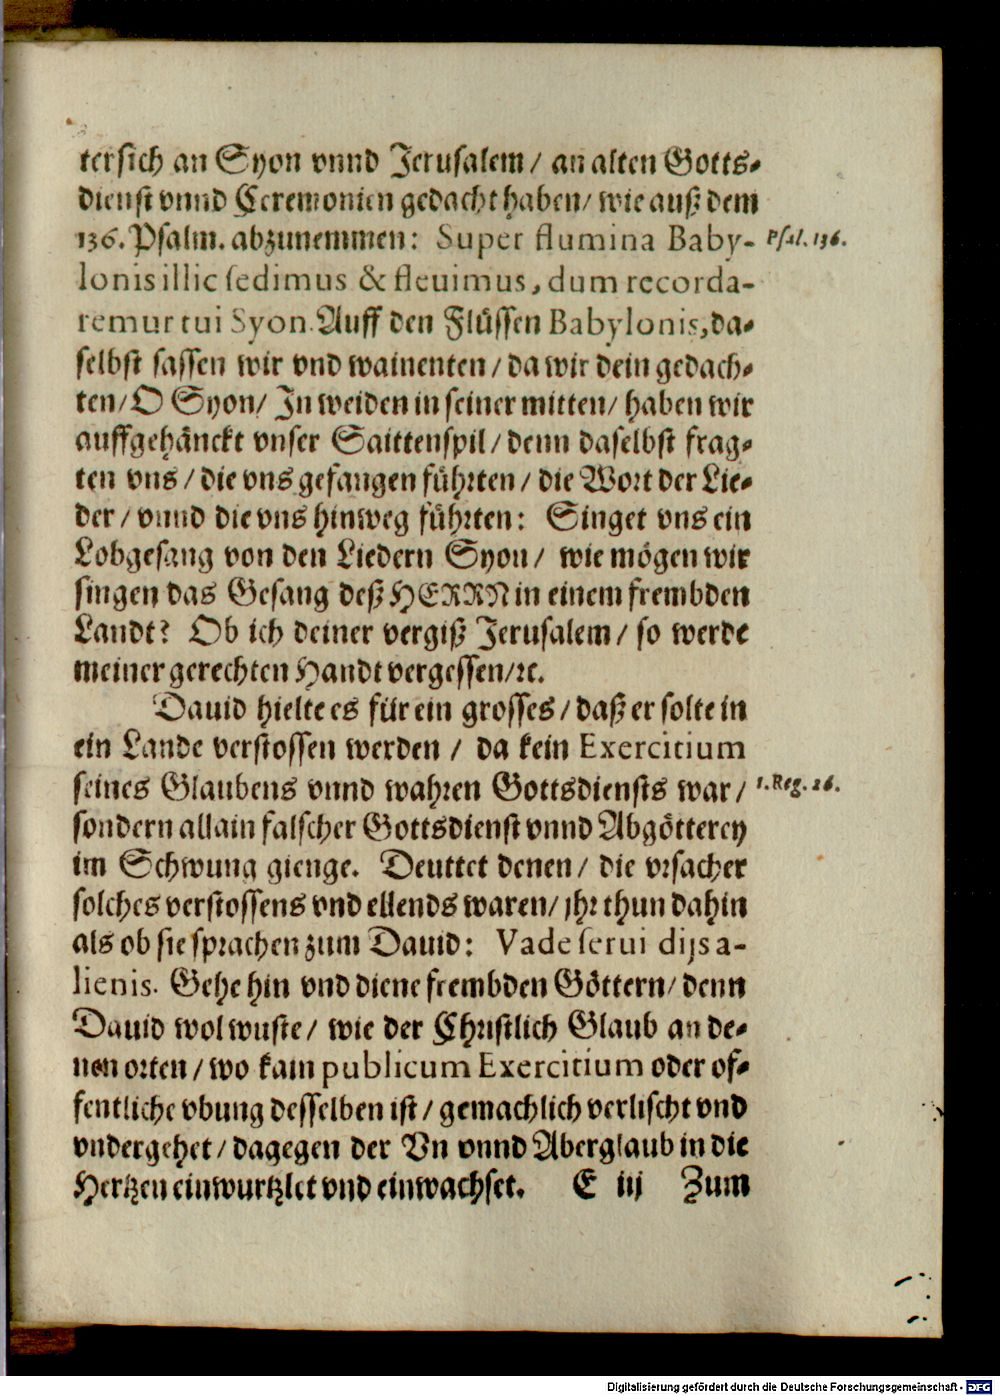 tersich an Syon vnnd Jerusalem / an alten Gotts-
dienst vnnd Ceremonien gedacht haben / wie auß dem
136. Psalm. abzunemmen: Super flumina Baby-
Psal. 136.
lonis illic sedimus & fleuimus, dum recorda-
remur tui Syon. Auff den Flüssen Babylonis, da-
selbst sassen wir vnd wainenten / da wir dein gedach-
ten / O Syon / In weiden in seiner mitten / haben wir
auffgehänckt vnser Saittenspil / denn daselbst frag-
ten vns / die vns gefangen führten / die Wort der Lie-
der / vnnd die vns hinweg führten: Singet vns ein
Lobgesang von den Liedern Syon / wie mögen wir
singen das Gesang deß HERRN in einem frembden
Landt? Ob ich deiner vergiß Jerusalem / so werde
meiner gerechten Handt vergessen / ꝛc.
Dauid hielte es für ein grosses / daß er solte in
ein Lande verstossen werden / da kein Exercitium
seines Glaubens vnnd wahren Gottsdiensts war /
1. Reg. 26.
sondern allain falscher Gottsdienst vnnd Abgötterey
im Schwung gienge. Deuttet denen / die vrsacher
solches verstossens vnd ellends waren / jhr thun dahin
als ob sie sprachen zum Dauid: Vade serui dijs a-
lienis. Gehe hin vnd diene frembden Göttern / denn
Dauid wol wuste / wie der Christlich Glaub an de-
nen orten / wo kain publicum Exercitium oder of-
fentliche vbung desselben ist / gemachlich verlischt vnd
vndergehet / dagegen der Vn vnnd Aberglaub in die
Hertzen einwurtzlet vnd einwachset. E iij Zum
Digitalisierung gefördert durch die Deutsche Forschungsgemeinschaft - DFG